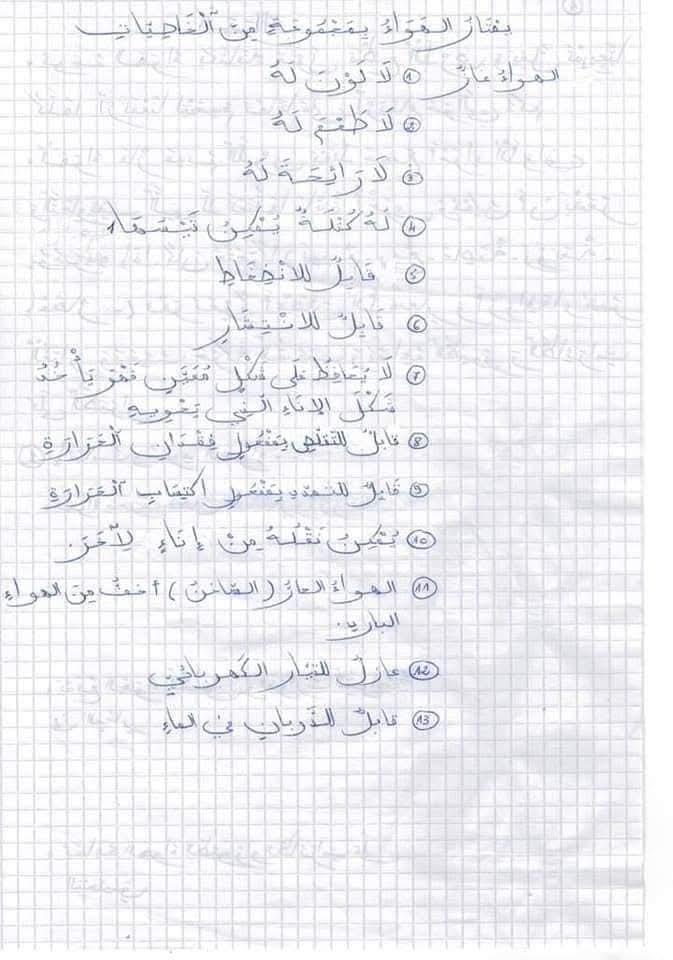 يمتاز الهواء بمجموعة من الخاصيات
الهواء غاز ① لَا لَوْنَ لَهُ
② لَا طَعْمَ لَهُ
③ لَا رَائِحَةَ لَهُ
④ لَهُ كُتْلَةٌ يُمْكِنُ
⑤ قَابِلٌ للانْضِغَاطِ
⑥ قَابِلٌ للانْتِشَارِ
⑦ لَا يُحَافِظُ عَلَى شَكْلٍ مُعَيَّنٍ فَهُوَ يَأْخُذُ
شَكْلَ الإِنَاءِ الَّذِي يَحْوِيهِ
⑧ قابلٌ للتقلّصِ بِمَفْعُولِ فِقْدَانِ الْحَرَارَةِ
⑨ قَابِلٌ للتمدّدِ بِمَفْعُولِ اكتِسَابِ الْحَرَارَةِ
⑩ يُمْكِنُ نَقْلُهُ مِنْ إِنَاءٍ لِآخَرَ.
⑪ الهواءُ الحارُّ (السّاخنُ) أخفُّ مِنَ الهواءِ
البارِدِ.
⑫ عازلٌ للتيّار الكَهربائيّ
⑬ قابلٌ للذّوبانِ في الماءِ